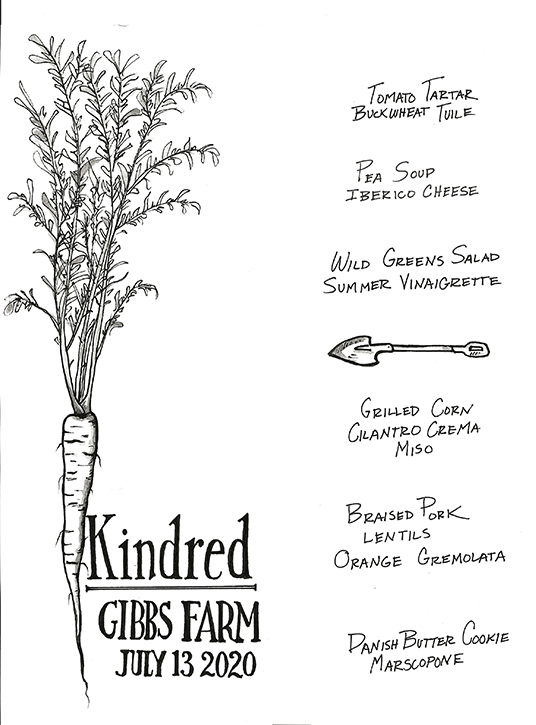 Tomato Tartar
Buckwheat Tuile
Pea Soup
Iberico Cheese
Wild Greens Salad
Summer Vinaigrette
Grilled Corn
Cilantro Crema
Miso
Braised Pork
Lentils
Orange Gremolata
Danish Butter Cookie
Marscopone
Kindred
GIBBS FARM
JULY 13 2020